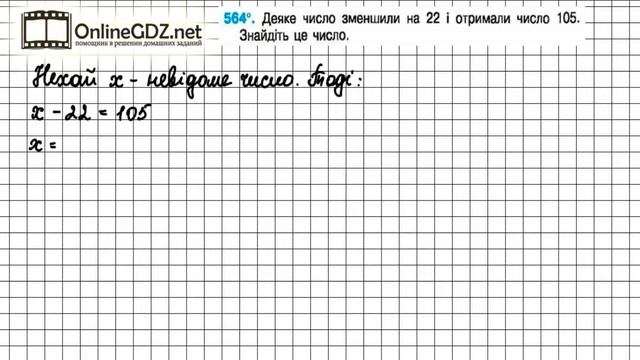 OnlineGDZ.net
помощник в решении домашних заданий
564°. Деяке число зменшили на 22 і отримали число 105.
Знайдіть це число.
Нехай x - невідоме число. Тоді:
x - 22 = 105
x =